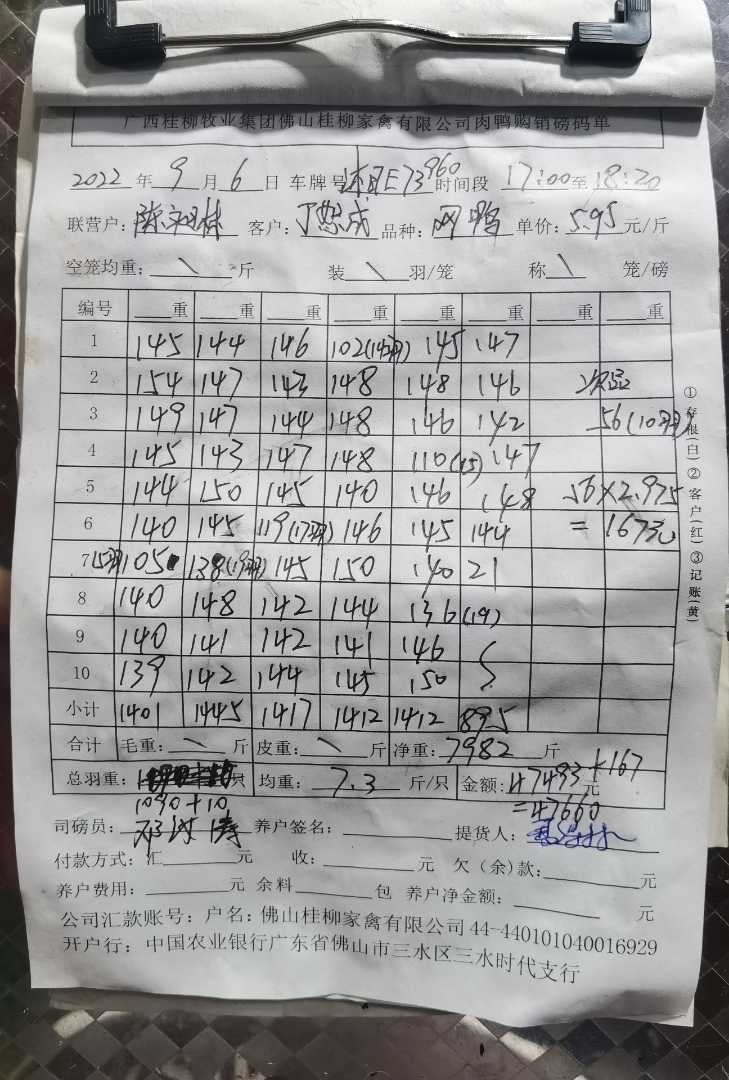 广西桂柳牧业集团佛山桂柳家禽有限公司肉鸭购销磅码单
2022 年 9 月 6 日 车牌号 E73960 时间段 17:00 至 18:20
联营户: 陈祖林 客户: 品种: 鸭 单价: 5.95 元/斤
空笼均重: \ 斤 装 \ 羽/笼 称 \ 笼/磅
编号 重 重 重 重 重 重 重 重
1 145 144 146 102(14羽) 145 147
2 154 147 143 148 148 146 次品
3 149 147 144 148 146 142 56(10羽)
4 145 143 147 148 110(15) 147
5 144 150 145 140 146 148 56×2.975
6 140 145 119(17羽) 146 145 144 =167元
7 15羽 105 138(19羽) 145 150 140 21
8 140 148 142 144 136(19)
9 140 141 142 141 146
10 139 142 144 145 150
小计 1401 1445 1417 1412 1412 895
合计 毛重: \ 斤 皮重: \ 斤 净重: 7982 斤
总羽重: 只 均重: 7.3 斤/只 金额: 47493+167 元
1090+10 =47660
司磅员: 养户签名: 提货人:
付款方式: 汇 元 收: 元 欠(余)款: 元
养户费用: 元 余料 包 养户净金额: 元
公司汇款账号: 户名: 佛山桂柳家禽有限公司 44-440101040016929
开户行: 中国农业银行广东省佛山市三水区三水时代支行
①存根(白)②客户(红)③记账(黄)